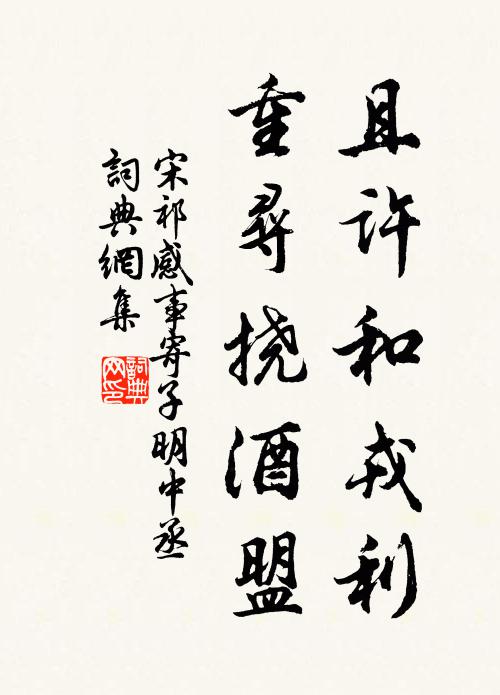 且许和戎利
重尋挠酒盟
宋祁感事寄子明中丞
詞典網集
詞典网印